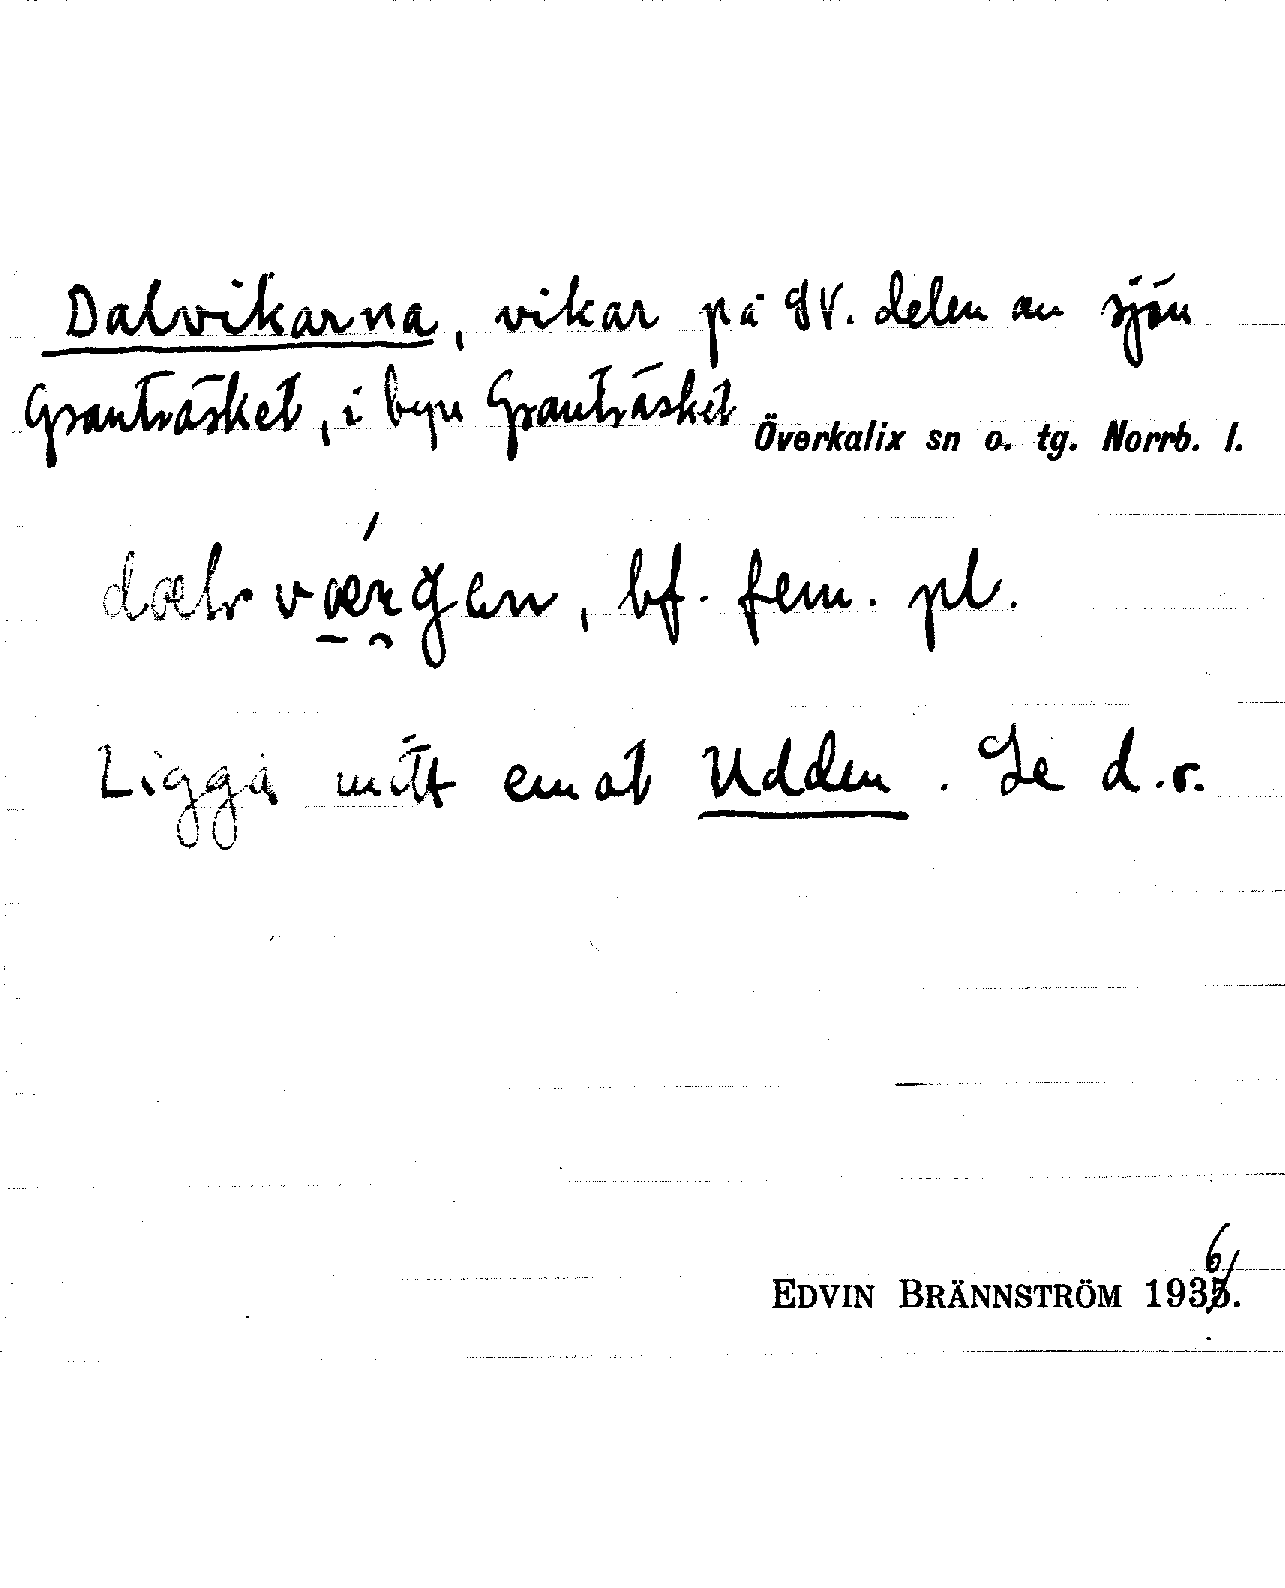 Dalvikarna, vikar på SV. delen av sjön
Granträsket, i byn Granträsket Överkalix sn o. tg. Norrb. l.
bf. fem. pl.
Ligga mitt emot Udden. Se d.o.
6
EDVIN BRÄNNSTRÖM 1935.